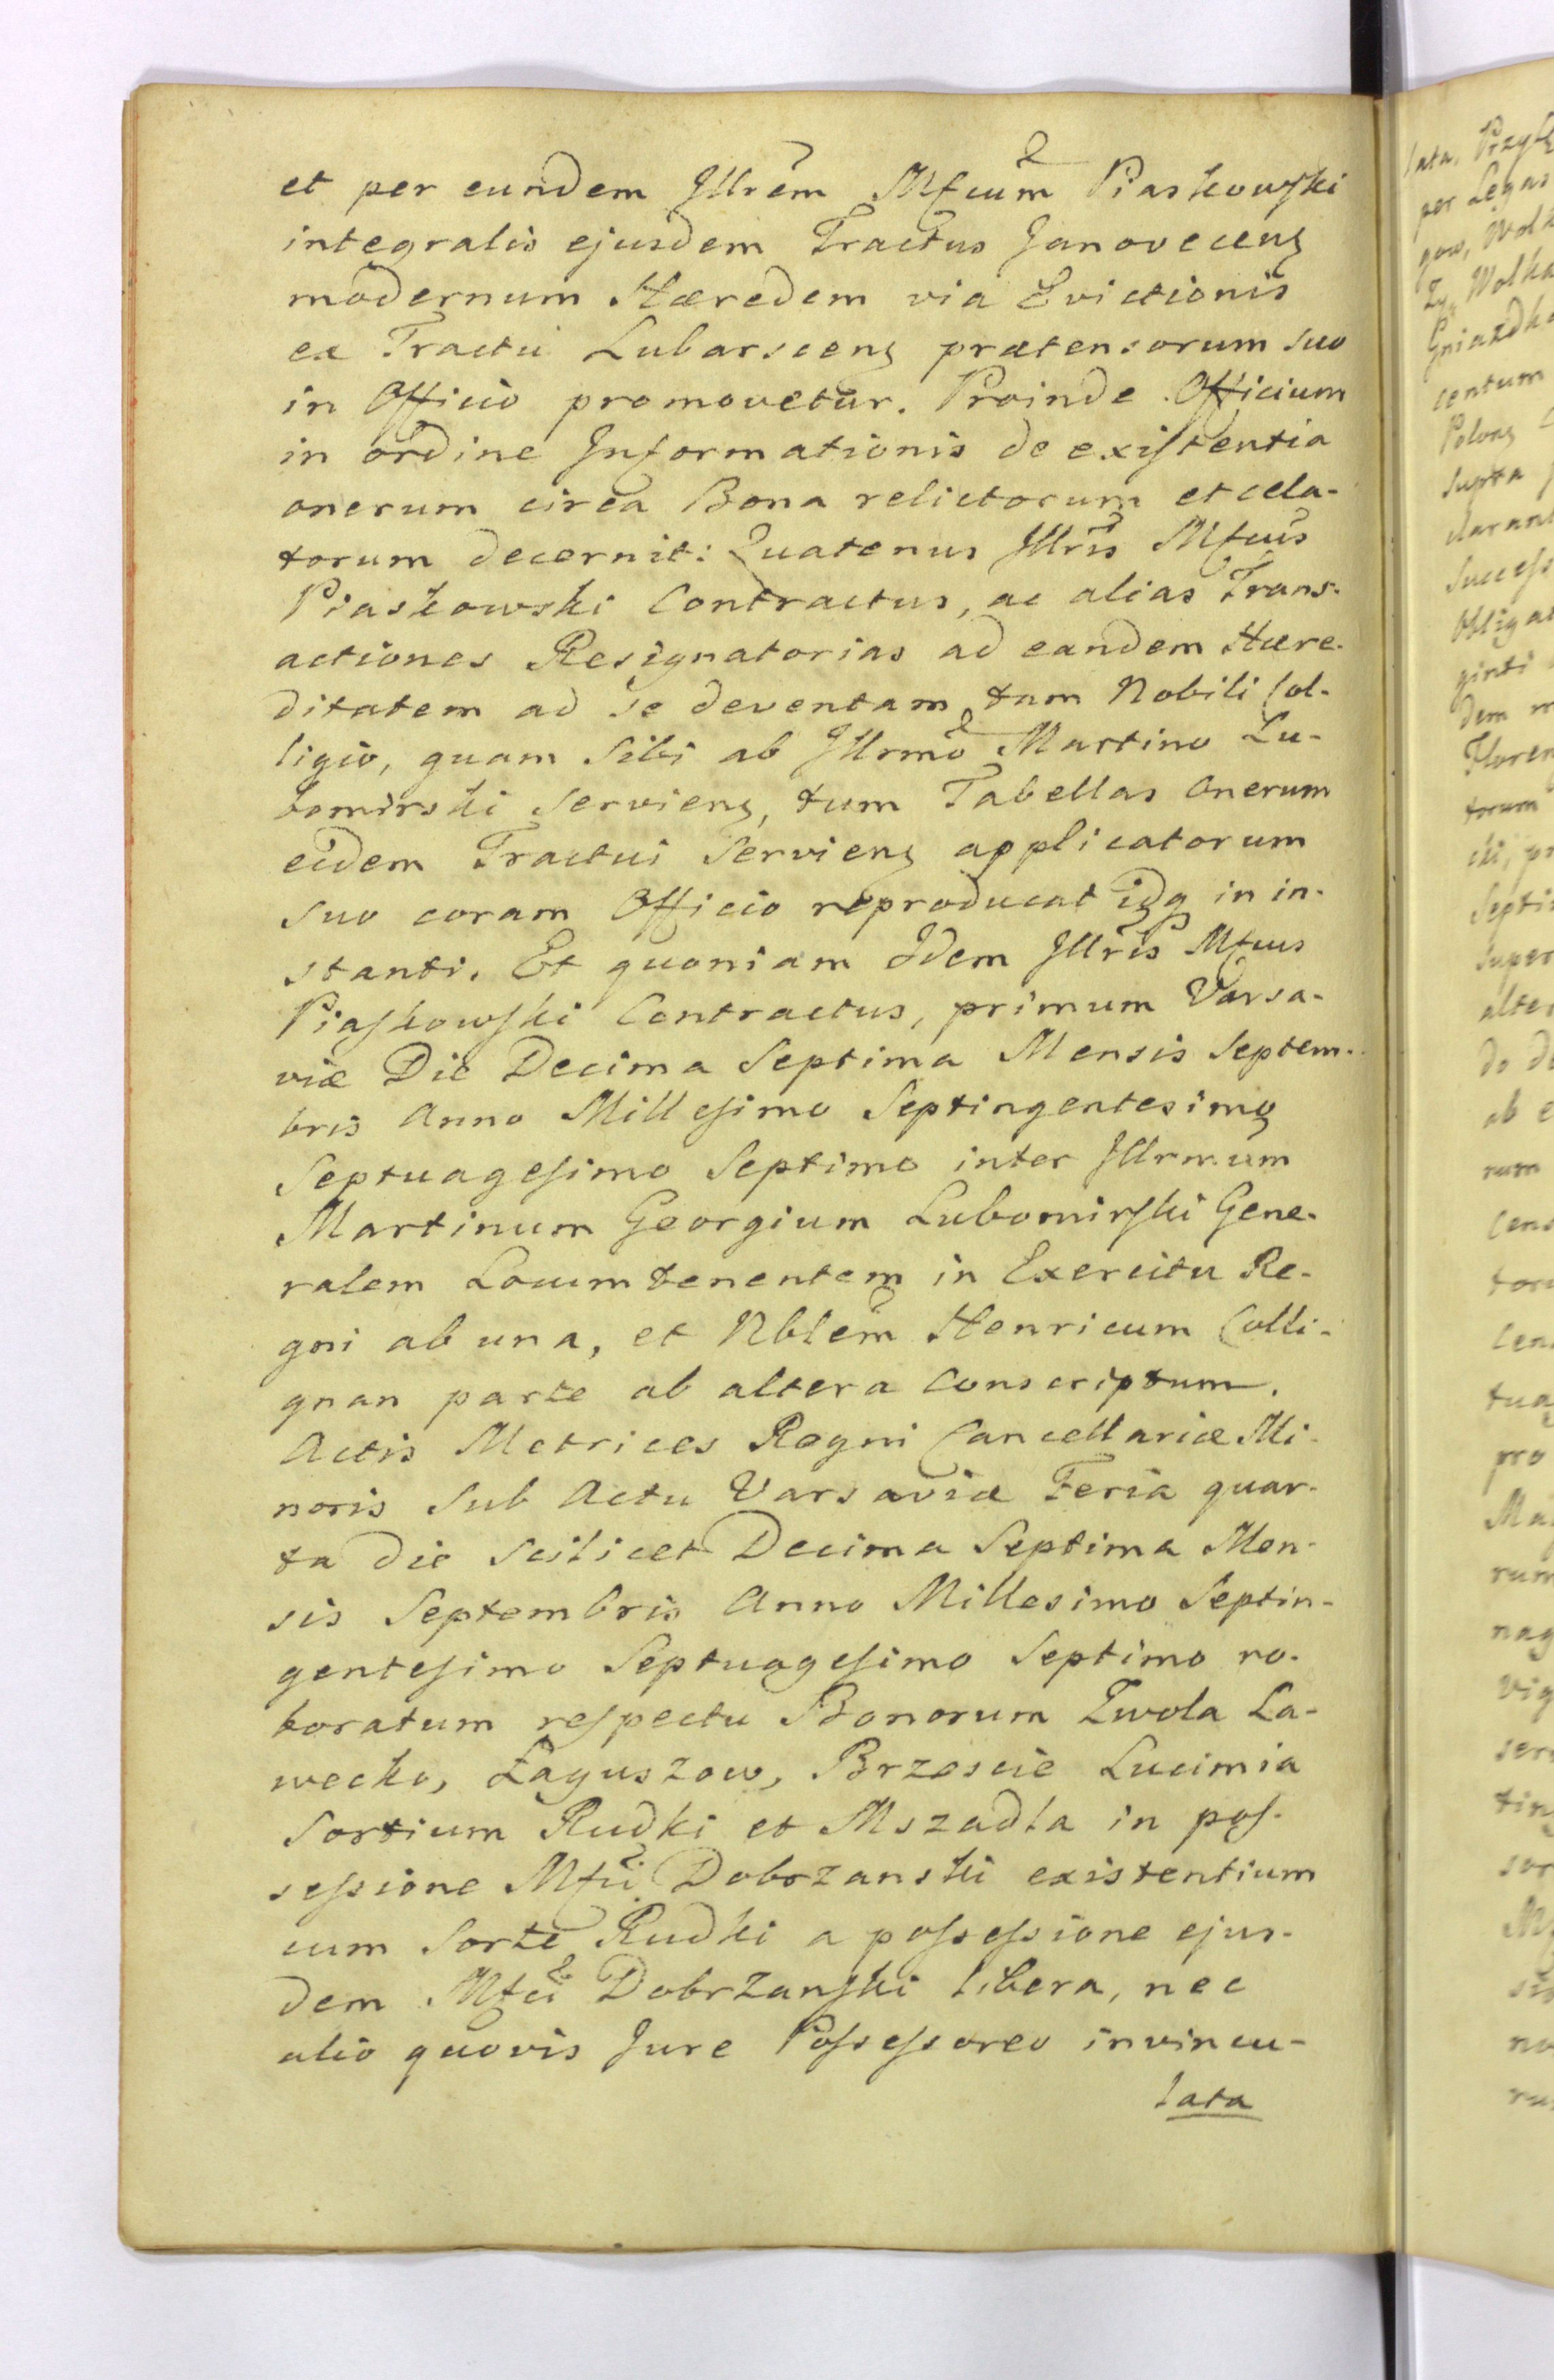 et per eundem Jllrem Mfcum Piaskowski
integralis ejusdem Tractus Janovecens
modernum Hæredem via Evictionis
ex Tractu Lubarscens prætensorum suo
in Officio promovetur. Proinde Officium
in ordine Jnformationis de existentia
onerum circa Bona relictorum et cela-
torum decernit: Quatenus Jllris Mfcus
Piaskowski Contractus, ac alias Trans-
actiones Resignatorias ad eandem Hære-
ditatem ad se deventam tum Nobili Col-
ligio, quam Sibi ab Jllrmo Martino Lu-
bomirski Serviens, tum Tabellas Onerum
eidem Tractui Serviens applicatorum
suo coram Officio reproducat idq in in-
stanti. Et quoniam Jdem Jllris Mfcus
Piaskowski Contractus, primum Varsa-
viæ Die Decima Septima Mensis Septem-
bris Anno Millesimo Septingentesimo
Septuagesimo Septimo inter Jllrmum
Martinum Georgium Lubomirski Gene-
ralem Locumtenentem in Exercitu Re-
gni ab una, et Nblem Henricum Colli-
gnan parte ab altera Conscriptum.
Actis Metrices Regni Cancellariæ Mi-
noris Sub Actu Varsaviæ Feria quar-
ta die Scilicet Decima Septima Men-
sis Septembris Anno Millesimo Septin-
gentesimo Septuagesimo Septimo ro-
boratum respectu Bonorum Zwola La-
wecko, Łaguszow, Brzescie Lucimia
Sortium Rudki et Mszadla in pos-
sessione Mfci Dobrzanski existentium
cum Sorte Rudki a possessione ejus-
dem Mfci Dobrzanski libera, nec
alio quovis Jure Possessoreo invincu-
lata